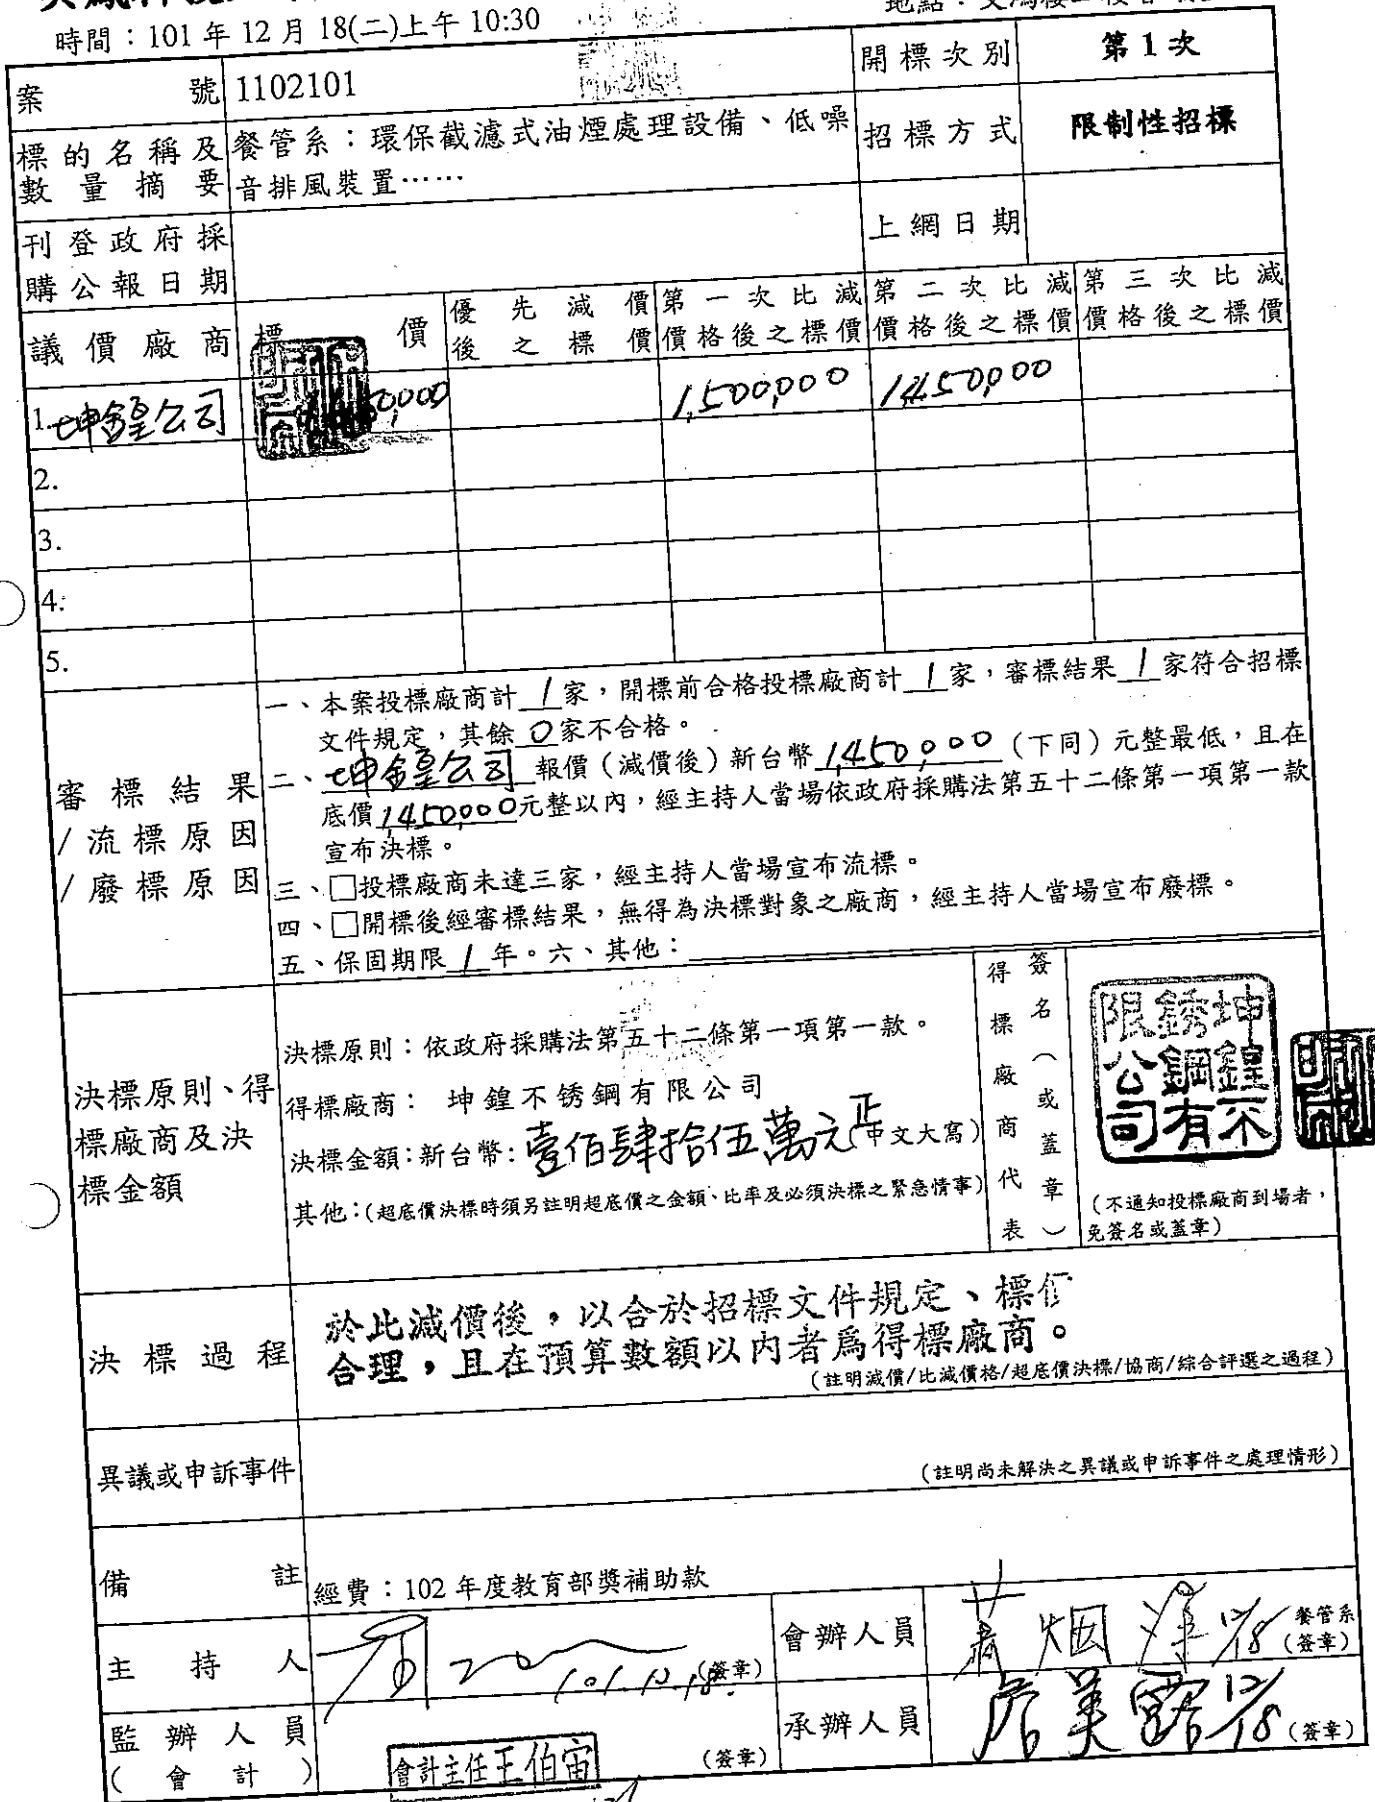 時間：101年12月18(二)上午10:30
案號 1102101 開標次別 第1次
標的名稱及數量摘要 餐管系：環保截濾式油煙處理設備、低噪 招標方式 限制性招標
音排風裝置……
刊登政府採購公報日期 上網日期
議價廠商 標價 優先減價後之標價 第一次比減價格後之標價 第二次比減價格後之標價 第三次比減價格後之標價
1. 坤鍠公司 1,500,000 1,450,000
2.
3.
4.
5.
審標結果
/流標原因
/廢標原因
一、本案投標廠商計1家，開標前合格投標廠商計1家，審標結果1家符合招標
文件規定，其餘0家不合格。
二、坤鍠公司報價（減價後）新台幣1,450,000（下同）元整最低，且在
底價1,450,000元整以內，經主持人當場依政府採購法第五十二條第一項第一款
宣布決標。
三、□投標廠商未達三家，經主持人當場宣布流標。
四、□開標後經審標結果，無得為決標對象之廠商，經主持人當場宣布廢標。
五、保固期限1年。六、其他：
決標原則、得
標廠商及決
標金額
決標原則：依政府採購法第五十二條第一項第一款。
得標廠商： 坤鍠不锈鋼有限公司
決標金額：新台幣：壹佰肆拾伍萬元正（中文大寫）
其他：（超底價決標時須另註明超底價之金額、比率及必須決標之緊急情事）
得標廠商代表
簽名（或蓋章）
坤鍠不
銹鋼有
限公司
（不通知投標廠商到場者，
免簽名或蓋章）
決標過程
於比減價後，以合於招標文件規定、標價
合理，且在預算數額以內者爲得標廠商。
（註明減價/比減價格/超底價決標/協商/綜合評選之過程）
異議或申訴事件
（註明尚未解決之異議或申訴事件之處理情形）
備註 經費：102年度教育部獎補助款
主持人 101.12.18 （簽章） 會辦人員 12/18 餐管系（簽章）
監辦人員（會計） 會計主任王伯宙 （簽章） 承辦人員 詹美露 12/18 （簽章）